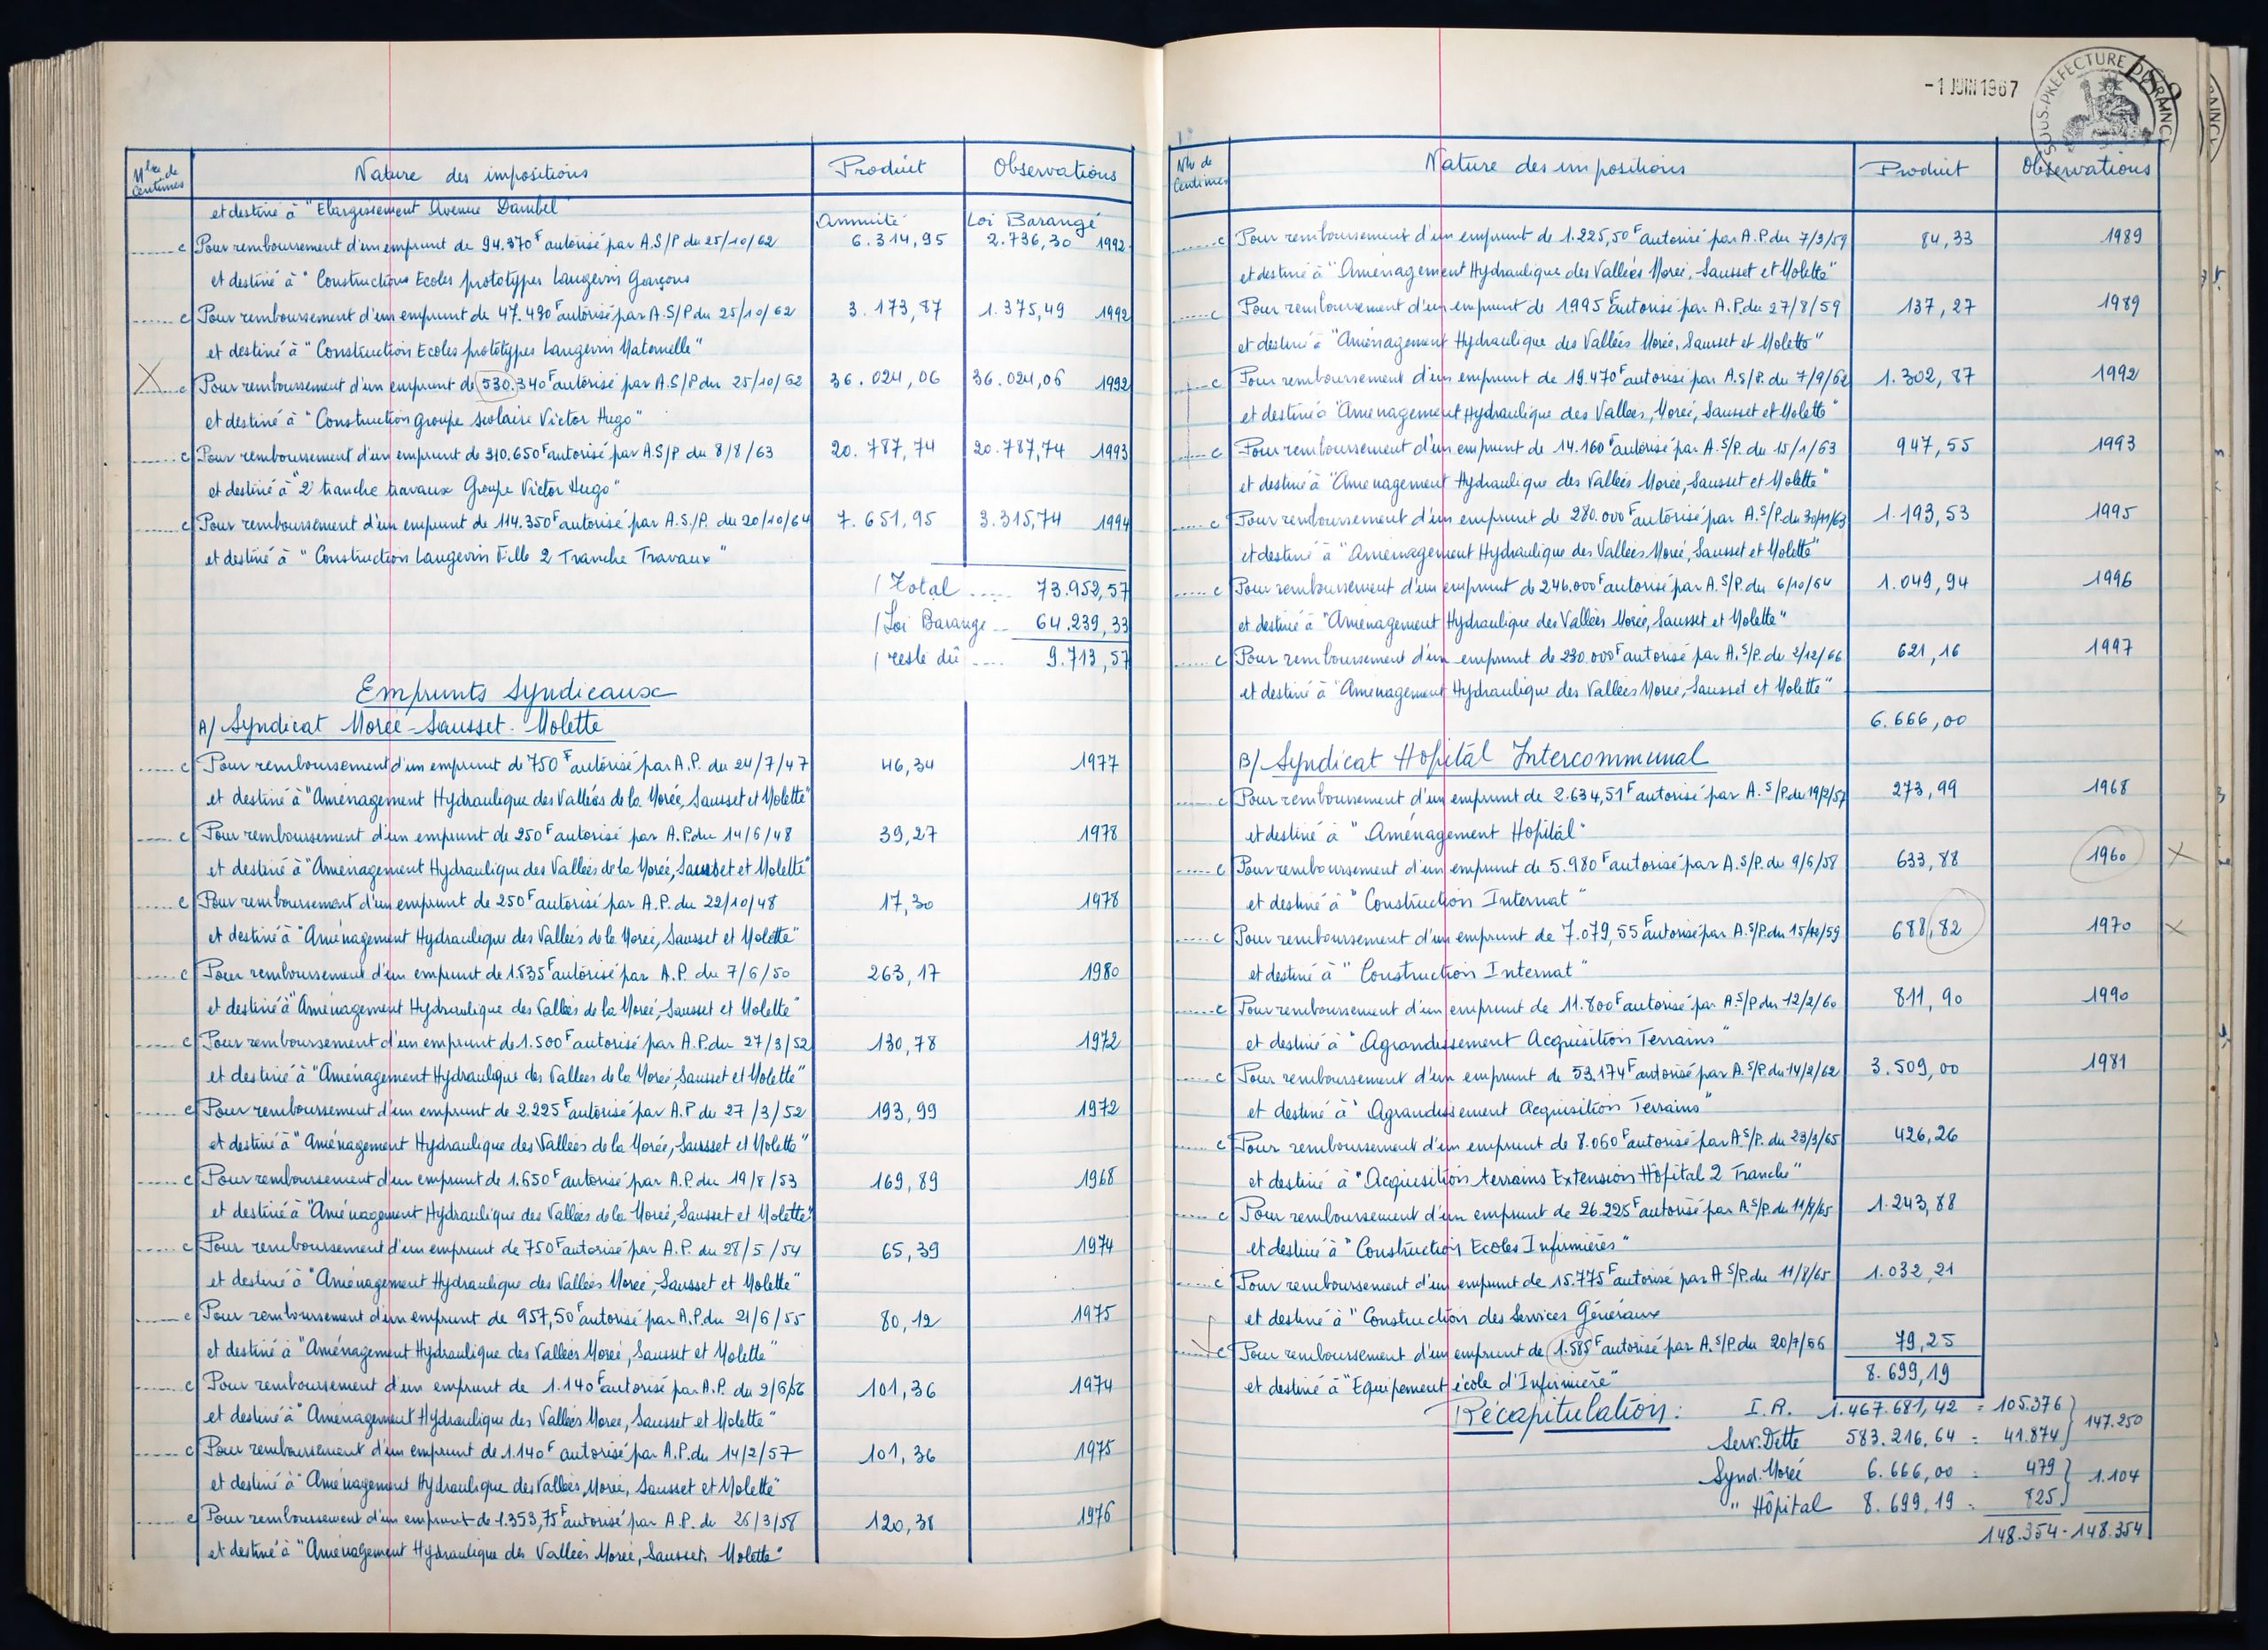 Nbre de Centimes Nature des impositions Produit Observations
et destiné à "Elargissement Avenue Dambel"
Annuité Loi Barangé
c Pour remboursement d'un emprunt de 94.370F autorisé par A.S/P du 25/10/62 6.314,95 2.736,30 1992
et destiné à "Constructions Ecoles prototypes Langevin Garçons
c Pour remboursement d'un emprunt de 47.430F autorisé par A.S/P du 25/10/62 3.173,87 1.375,49 1992
et destiné à "Construction Ecoles prototypes Langevin Maternelle"
X c Pour remboursement d'un emprunt de 530.340F autorisé par A.S/P du 25/10/62 36.024,06 36.024,06 1992
et destiné à "Construction groupe scolaire Victor Hugo"
c Pour remboursement d'un emprunt de 310.650F autorisé par A.S/P du 8/8/63 20.787,74 20.787,74 1993
et destiné à "2 tranche travaux Groupe Victor Hugo"
c Pour remboursement d'un emprunt de 114.350F autorisé par A.S./P. du 20/10/64 7.651,95 3.315,74 1994
et destiné à "Construction Langevin Fille 2 Tranche Travaux"
Total ..... 73.952,57
Loi Barange .. 64.239,33
reste dû .... 9.713,57
Emprunts Syndicaux
A/ Syndicat Morée-Sausset-Molette
c Pour remboursement d'un emprunt de 750F autorisé par A.P. du 24/7/47 46,34 1977
et destiné à "Aménagement Hydraulique des Vallées de la Morée, Sausset et Molette"
c Pour remboursement d'un emprunt de 250F autorisé par A.P. du 14/6/48 39,27 1978
et destiné à "Aménagement Hydraulique des Vallées de la Morée, Sausset et Molette"
c Pour remboursement d'un emprunt de 250F autorisé par A.P. du 22/10/48 17,30 1978
et destiné à "Aménagement Hydraulique des Vallées de la Morée, Sausset et Molette"
c Pour remboursement d'un emprunt de 1.535F autorisé par A.P. du 7/6/50 263,17 1980
et destiné à "Aménagement Hydraulique des Vallées de la Morée, Sausset et Molette"
c Pour remboursement d'un emprunt de 1.500F autorisé par A.P. du 27/3/52 130,78 1972
et destiné à "Aménagement Hydraulique des Vallées de la Morée, Sausset et Molette"
c Pour remboursement d'un emprunt de 2.225F autorisé par A.P du 27/3/52 193,99 1972
et destiné à "Aménagement Hydraulique des Vallées de la Morée, Sausset et Molette"
c Pour remboursement d'un emprunt de 1.650F autorisé par A.P. du 19/8/53 169,89 1968
et destiné à "Aménagement Hydraulique des Vallées de la Morée, Sausset et Molette"
c Pour remboursement d'un emprunt de 750F autorisé par A.P. du 28/5/54 65,39 1974
et destiné à "Aménagement Hydraulique des Vallées Morée, Sausset et Molette"
c Pour remboursement d'un emprunt de 957,50F autorisé par A.P. du 21/6/55 80,12 1975
et destiné à "Aménagement Hydraulique des Vallées Morée, Sausset et Molette"
c Pour remboursement d'un emprunt de 1.140F autorisé par A.P. du 2/6/56 101,36 1974
et destiné à "Aménagement Hydraulique des Vallées Morée, Sausset et Molette"
c Pour remboursement d'un emprunt de 1.140F autorisé par A.P. du 14/2/57 101,36 1975
et destiné à "Aménagement Hydraulique des Vallées, Morée, Sausset et Molette"
c Pour remboursement d'un emprunt de 1.353,75F autorisé par A.P. du 26/3/58 120,38 1976
et destiné à "Aménagement Hydraulique des Vallées Morée, Sausset, Molette"
-1 JUIN 1967
SOUS-PRÉFECTURE DU RAINCY
Nbr de Centimes Nature des impositions Produit Observations
c Pour remboursement d'un emprunt de 1.225,50F autorisé par A.P. du 7/3/59 84,33 1989
et destiné à "Aménagement Hydraulique des Vallées Morée, Sausset et Molette"
c Pour remboursement d'un emprunt de 1995F autorisé par A.P. du 27/8/59 137,27 1989
et destiné à "Aménagement Hydraulique des Vallées Morée, Sausset et Molette"
c Pour remboursement d'un emprunt de 19.470F autorisé par A.S/P. du 7/9/62 1.302,87 1992
et destiné à "Aménagement Hydraulique des Vallées, Morée, Sausset et Molette"
c Pour remboursement d'un emprunt de 14.160F autorisé par A.S/P. du 15/1/63 947,55 1993
et destiné à "Aménagement Hydraulique des Vallées Morée, Sausset et Molette"
c Pour remboursement d'un emprunt de 280.000F autorisé par A.S/P. du 30/11/63 1.193,53 1995
et destiné à "Aménagement Hydraulique des Vallées Morée, Sausset et Molette"
c Pour remboursement d'un emprunt de 246.000F autorisé par A.S/P. du 6/10/64 1.049,94 1996
et destiné à "Aménagement Hydraulique des Vallées Morée, Sausset et Molette"
c Pour remboursement d'un emprunt de 230.000F autorisé par A.S/P. du 2/12/66 621,16 1997
et destiné à "Aménagement Hydraulique des Vallées Morée, Sausset et Molette"
6.666,00
B/ Syndicat Hopital Intercommunal
c Pour remboursement d'un emprunt de 2.634,51F autorisé par A.S/P. du 19/2/57 273,99 1968
et destiné à "Aménagement Hopital"
c Pour remboursement d'un emprunt de 5.980F autorisé par A.S/P. du 9/6/58 633,88 1960 X
et destiné à "Construction Internat"
c Pour remboursement d'un emprunt de 7.079,55F autorisé par A.S/P. du 15/10/59 688,82 1970 X
et destiné à "Construction Internat"
c Pour remboursement d'un emprunt de 11.800F autorisé par A.S/P du 12/2/60 811,90 1990
et destiné à "Agrandissement Acquisition Terrains"
c Pour remboursement d'un emprunt de 53.174F autorisé par A.S/P. du 14/2/62 3.509,00 1981
et destiné à "Agrandissement Acquisition Terrains"
c Pour remboursement d'un emprunt de 8.060F autorisé par A.S/P. du 23/3/65 426,26
et destiné à "Acquisition terrains Extension Hôpital 2 Tranche"
c Pour remboursement d'un emprunt de 26.225F autorisé par A.S/P. du 11/8/65 1.243,88
et destiné à "Construction Ecoles Infirmières"
c Pour remboursement d'un emprunt de 15.775F autorisé par A.S/P. du 11/8/65 1.032,21
et destiné à "Construction des Services Généraux
X c Pour remboursement d'un emprunt de 1.585F autorisé par A.S/P. du 20/7/66 79,25
et destiné à "Equipement école d'Infirmière" 8.699,19
Récapitulation: I.R. 1.467.681,42 = 105.376
147.250
Serv. Dette 583.216,64 = 41.874
Synd. Morée 6.666,00 = 479
1.104
" Hôpital 8.699,19 = 825
148.354 - 148.354